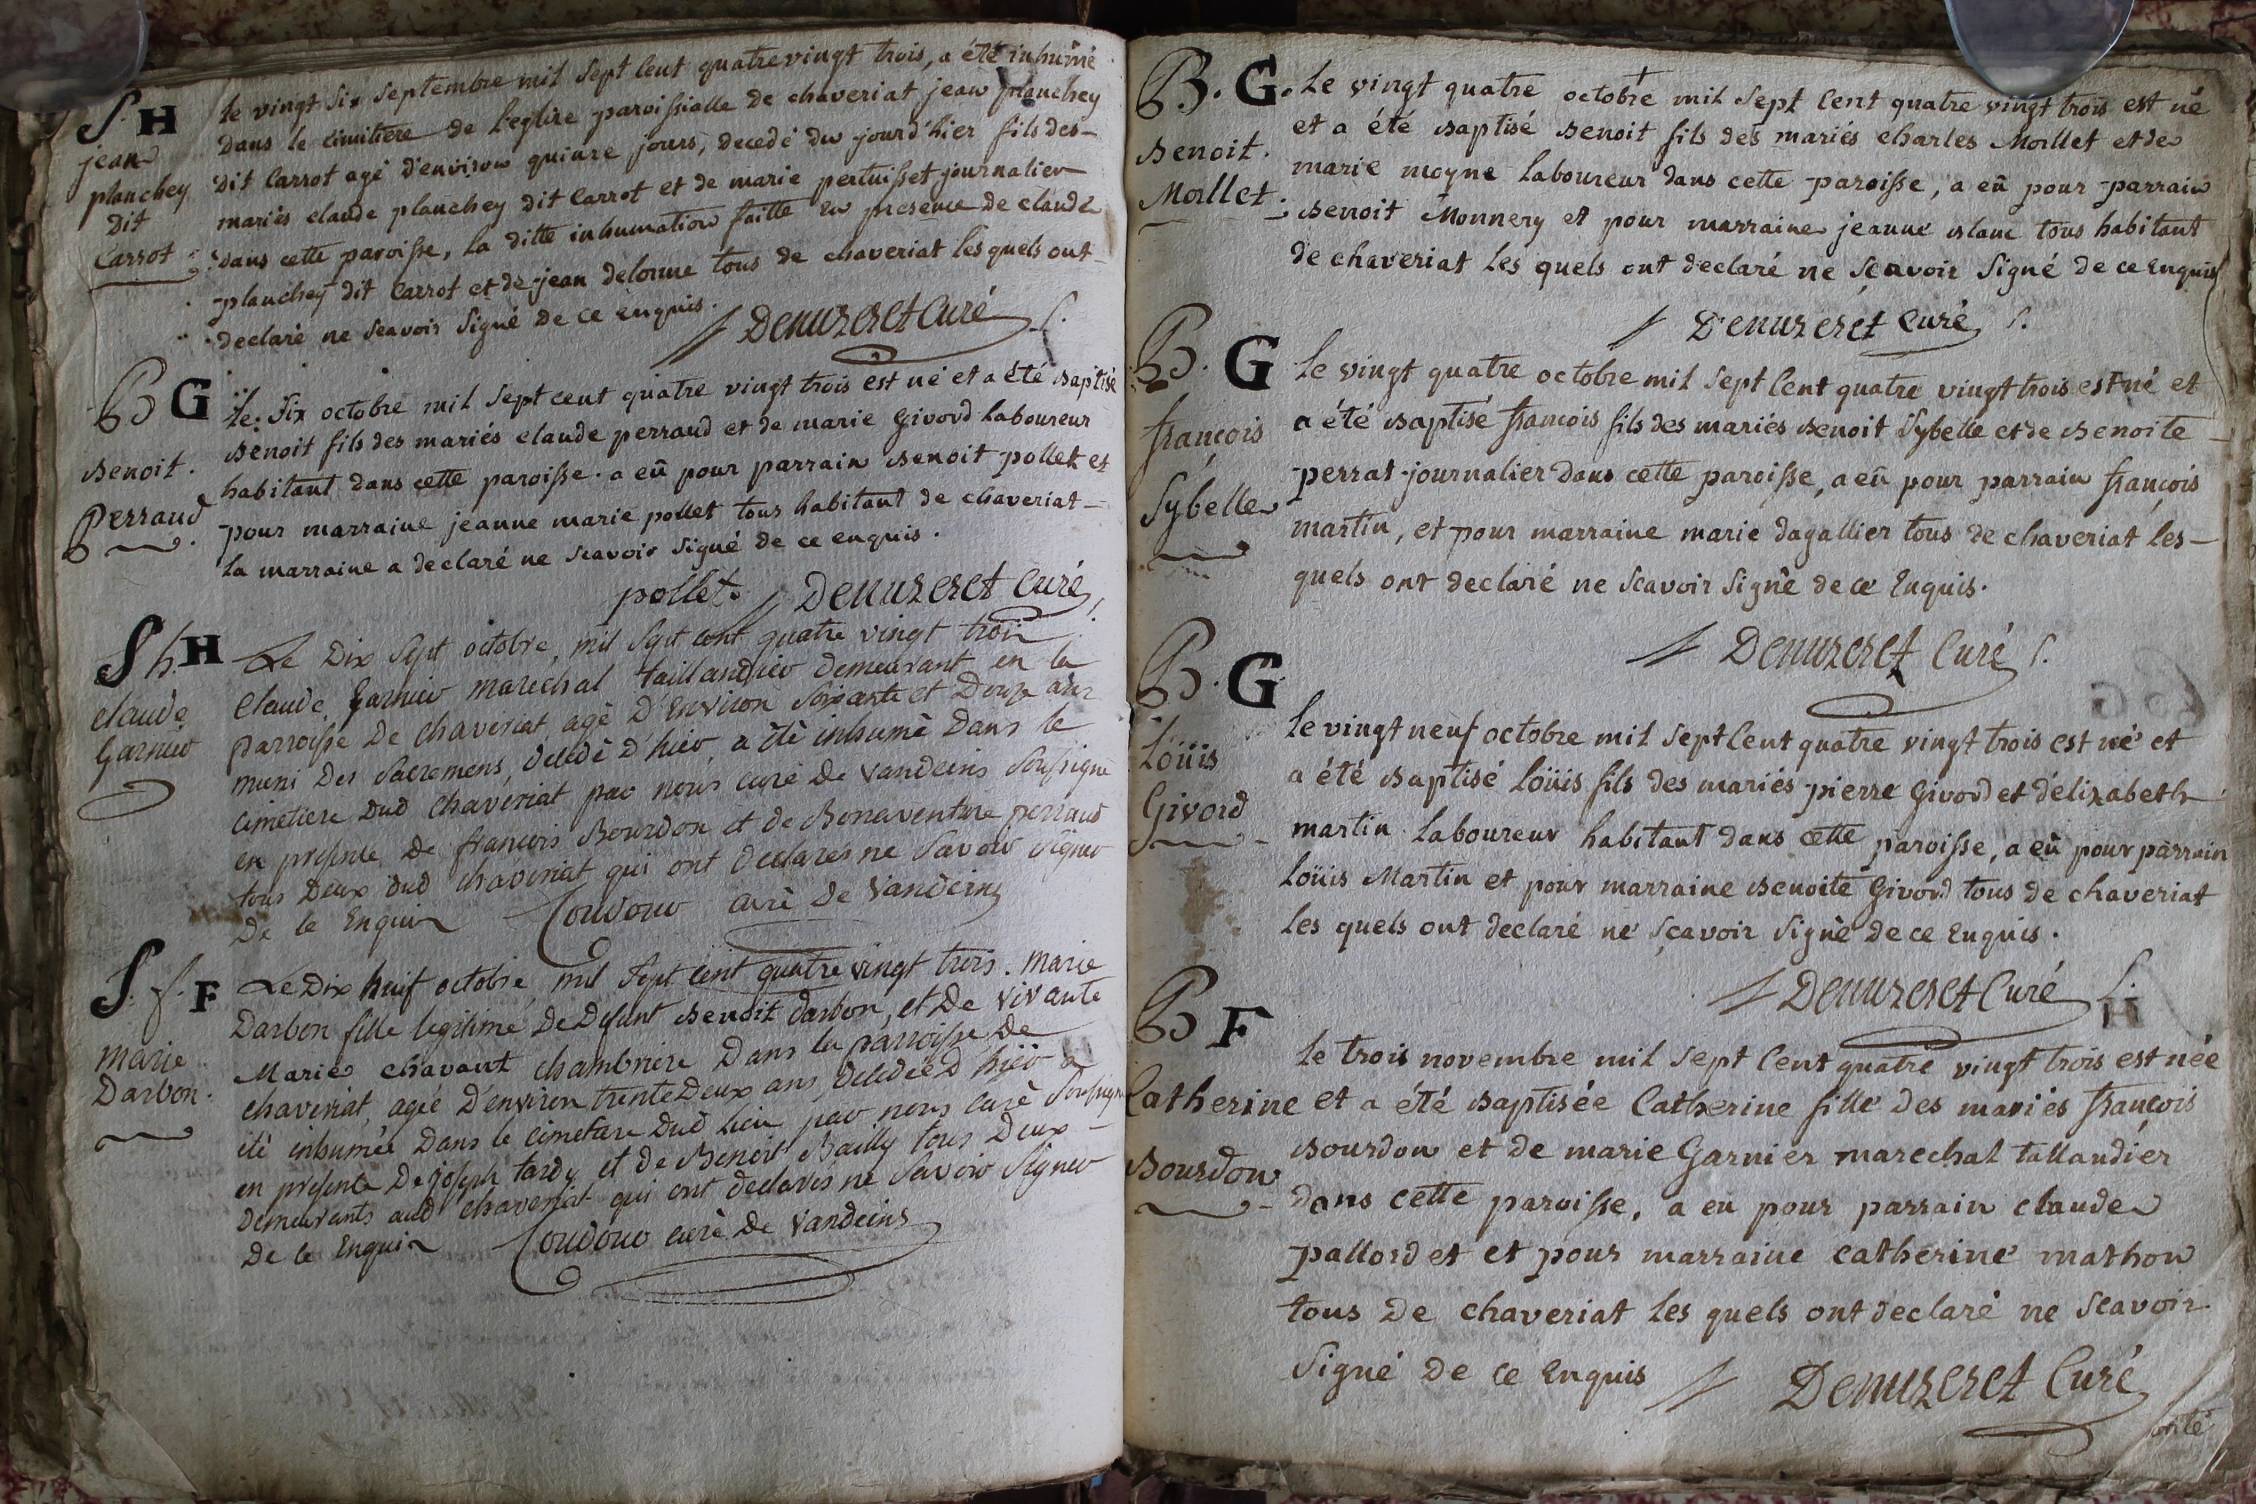 S. H
jean
planchey
dit
Carrot
le vingt six septembre mil sept Cent quatre vingt trois, a été inhumé
dans le cimitiere de l'eglise paroissialle de chaveriat jean planchey
dit Carrot agé d'environ quinze jours, decedé du jourd'hier fils des-
mariés claude planchey dit Carrot et de marie pertuisset journalier
dans cette paroisse, la ditte inhumation faitte en presence de claude
planchey dit Carrot et de jean delorme tous de chaveriat les quels ont-
declaré ne sçavoir signé de ce enquis.
Denuzeret Curé
B G
Benoit.
Perraud
le six octobre mil sept cent quatre vingt trois est né et a été Baptisé
Benoit fils des mariés claude perraud et de marie Givord laboureur
habitant dans cette paroisse. a eû pour parrain Benoit pollet et
pour marraine jeanne marie pollet tous habitant de chaveriat-
la marraine a declaré ne scavoir signé de ce enquis.
pollet. Denuzeret Curé
S h. H
claude
Garnier
Le Dix sept octobre, mil sept cent quatre vingt trois
Claude Garnier marechal taillandier demeurant en la
parroisse De chaveriat, agé D'Environ soixante et Douze ans
muni Des sacremens, decedé D'hier, a été inhumé Dans le
cimetiere Dud chaveriat par nous curé De vandeins soussigné
en presence De françois Bourdon et de Bonaventure perraud
tous Deux dud chaveriat qui ont declarés ne savoir signer
De ce Enquis Coudour curé de vandeins
S. f. F
marie
Darbon.
Le Dix huit octobre, mil sept cent quatre vingt trois. Marie
Darbon fille legitime De Defunt Benoit darbon, et De vivante
Marie chavant chambriere Dans la parroisse De
chaveriat, agée D'environ trente Deux ans, decedée D'hier a
été inhumée Dans le cimetiere Dud lieu par nous curé soussigné
en presence De joseph tardy et de Benoit Bailly tous Deux-
demeurants aud chaveriat qui ont declarés ne savoir signer
De ce Enquis Coudour curé De vandeins
B. G.
Benoit.
Morllet.
le vingt quatre octobre mil sept Cent quatre vingt trois est né
et a été Baptisé Benoit fils des mariés charles Morllet et de
marie moyne laboureur dans cette paroisse, a eû pour parrain
Benoit Monnery et pour marraine jeanne Blanc tous habitant
de chaveriat les quels ont declaré ne sçavoir signé de ce enquis
Denuzeret Curé
B. G
françois
Sybelle
le vingt quatre octobre mil sept Cent quatre vingt trois est né et
a été Baptisé françois fils des mariés Benoit Sybelle et de Benoite-
perrat journalier dans cette paroisse, a eû pour parrain françois
martin, et pour marraine marie dagallier tous de chaveriat les-
quels ont declaré ne scavoir signé de ce Enquis.
Denuzeret Curé
B. G
Loüis
Givord
le vingt neuf octobre mil sept Cent quatre vingt trois est né et
a été Baptisé loüis fils des mariés pierre Givord et d'élizabeth
martin laboureur habitant dans cette paroisse, a eû pour parrain
loüis Martin et pour marraine Benoite Givord tous de chaveriat
les quels ont declaré ne sçavoir signé de ce Enquis.
Denuzeret Curé
B F
Catherine
Bourdon
le trois novembre mil sept Cent quatre vingt trois est née
et a été Baptisée Catherine fille des mariés françois
Bourdon et de marie Garnier marechal tallandier
dans cette paroisse, a eu pour parrain claude
pallordet et pour marraine catherine mathon
tous de chaveriat les quels ont declaré ne scavoir
signé de ce Enquis Denuzeret Curé